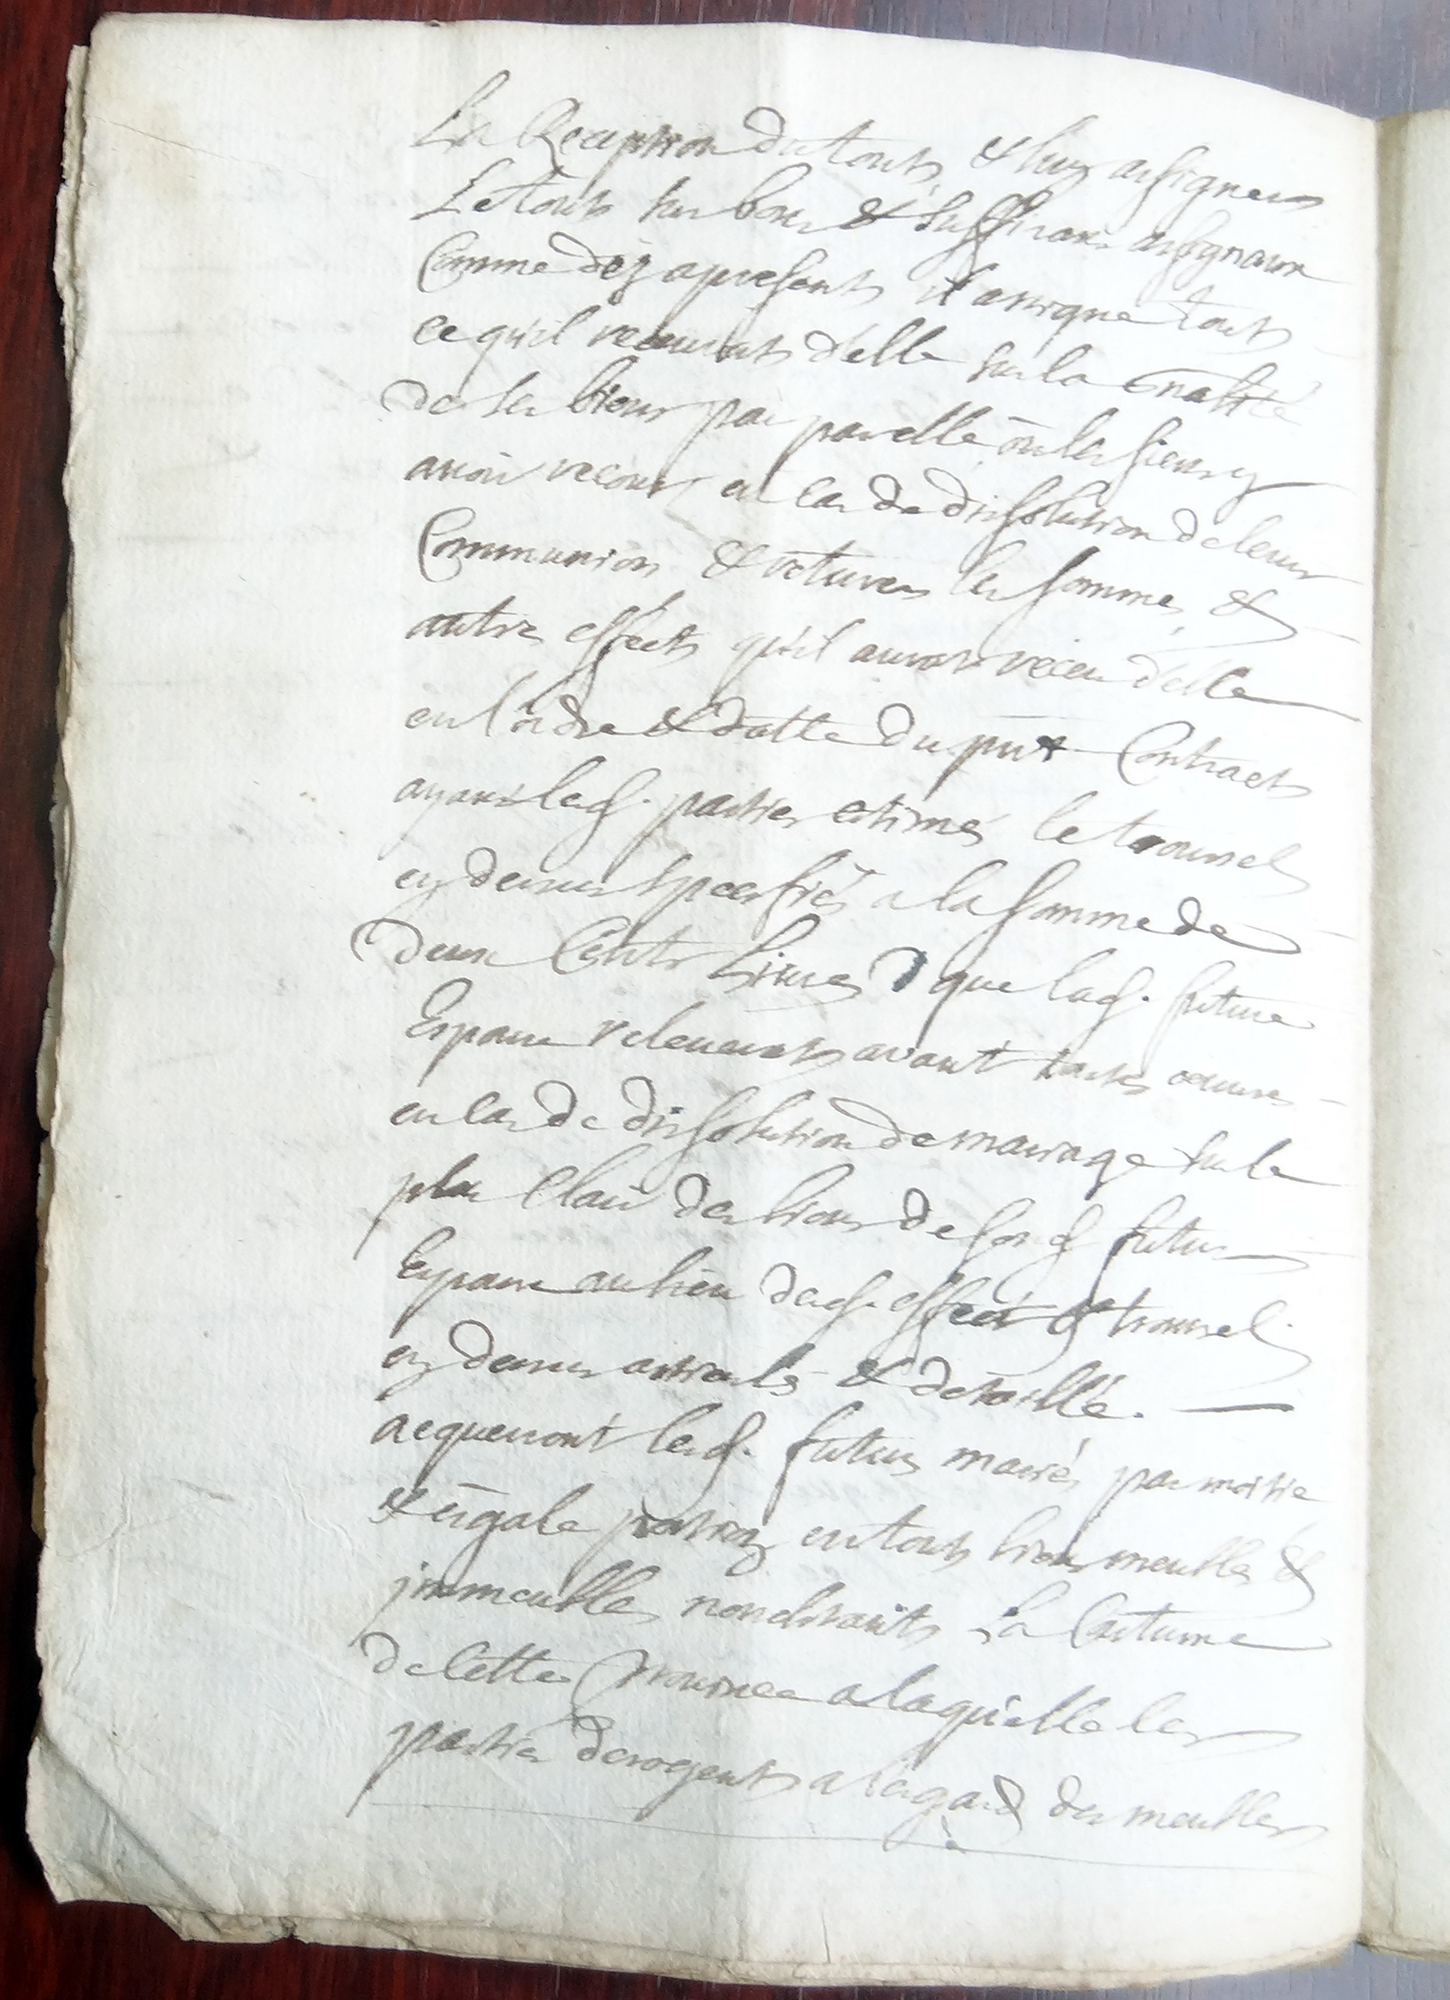 La Reception du touts & luy assigner
Le touts sur bons & suffisans assignaux
Comme dez apresents il assigne touts
ce qu'il recevrats d'elle sur la
de ses biens par par elle ou les siens y
avoir recours en cas de dissolution de leur
Communion & retirer les sommes &
autres effects qu'il aurats receu d'elle
en l'ordre & datte du pnt Contracts
ayant lesd. parties estimés le troussel
cy dessus specifiés a la somme de
deux Cents Livres que lad. future
Espouse relevrats avant toutes oeuvres
en cas de dissolution de mariage sur le
plus Clair des biens de sond futur
Espoux au lieu desd. effect & troussel
cy dessus articulés & detaillé.
acqueront lesd. futurs mariés par moitié
& egale portion en touts biens meubles &
jmmeubles nonobstants La Coutume
de Cette Province a laquelle les
parties derogents a legard des meubles